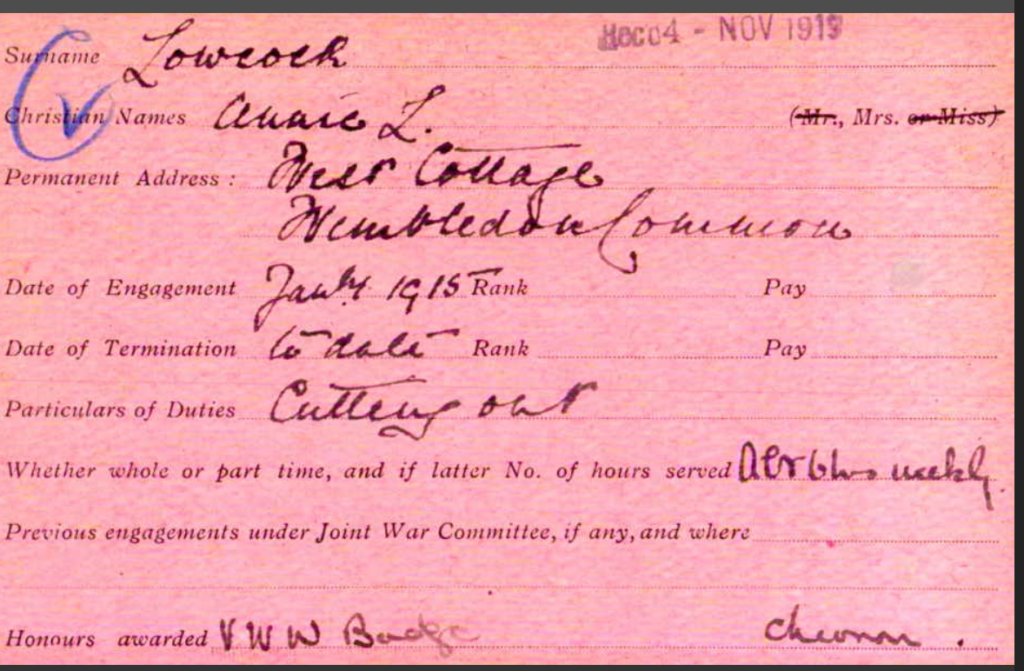 4 - NOV 1919
Surname Lowcock
Christian Names Annie L. (Mr., Mrs. or Miss)
Permanent Address: West Cottage
Wimbledon Common
Date of Engagement Jany 1915 Rank Pay
Date of Termination to date Rank Pay
Particulars of Duties Cutting out
Whether whole or part time, and if latter No. of hours served Abt 6 hrs weekly.
Previous engagements under Joint War Committee, if any, and where
Honours awarded V W W Badge Chevron .